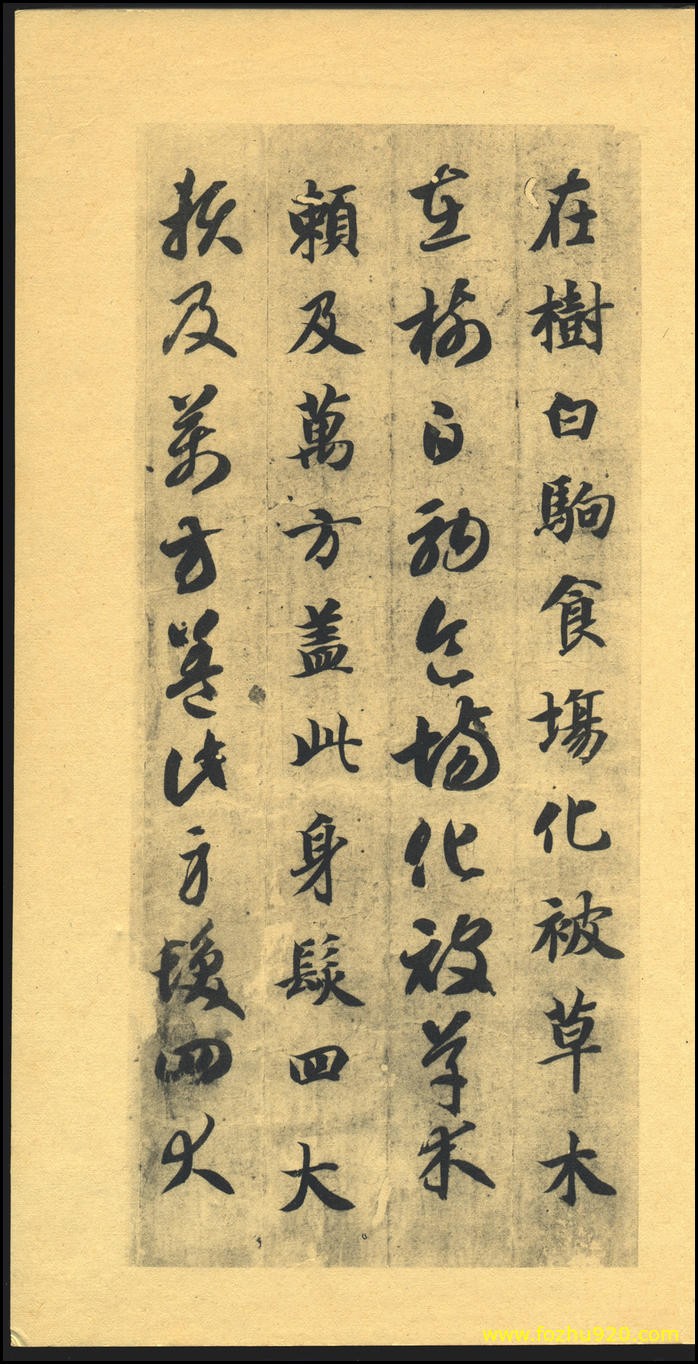 在樹白駒食場化被草木
在樹白駒食場化被草木
賴及萬方盖此身髮四大
賴及萬方盖此身髮四大
www.fozhu920.com